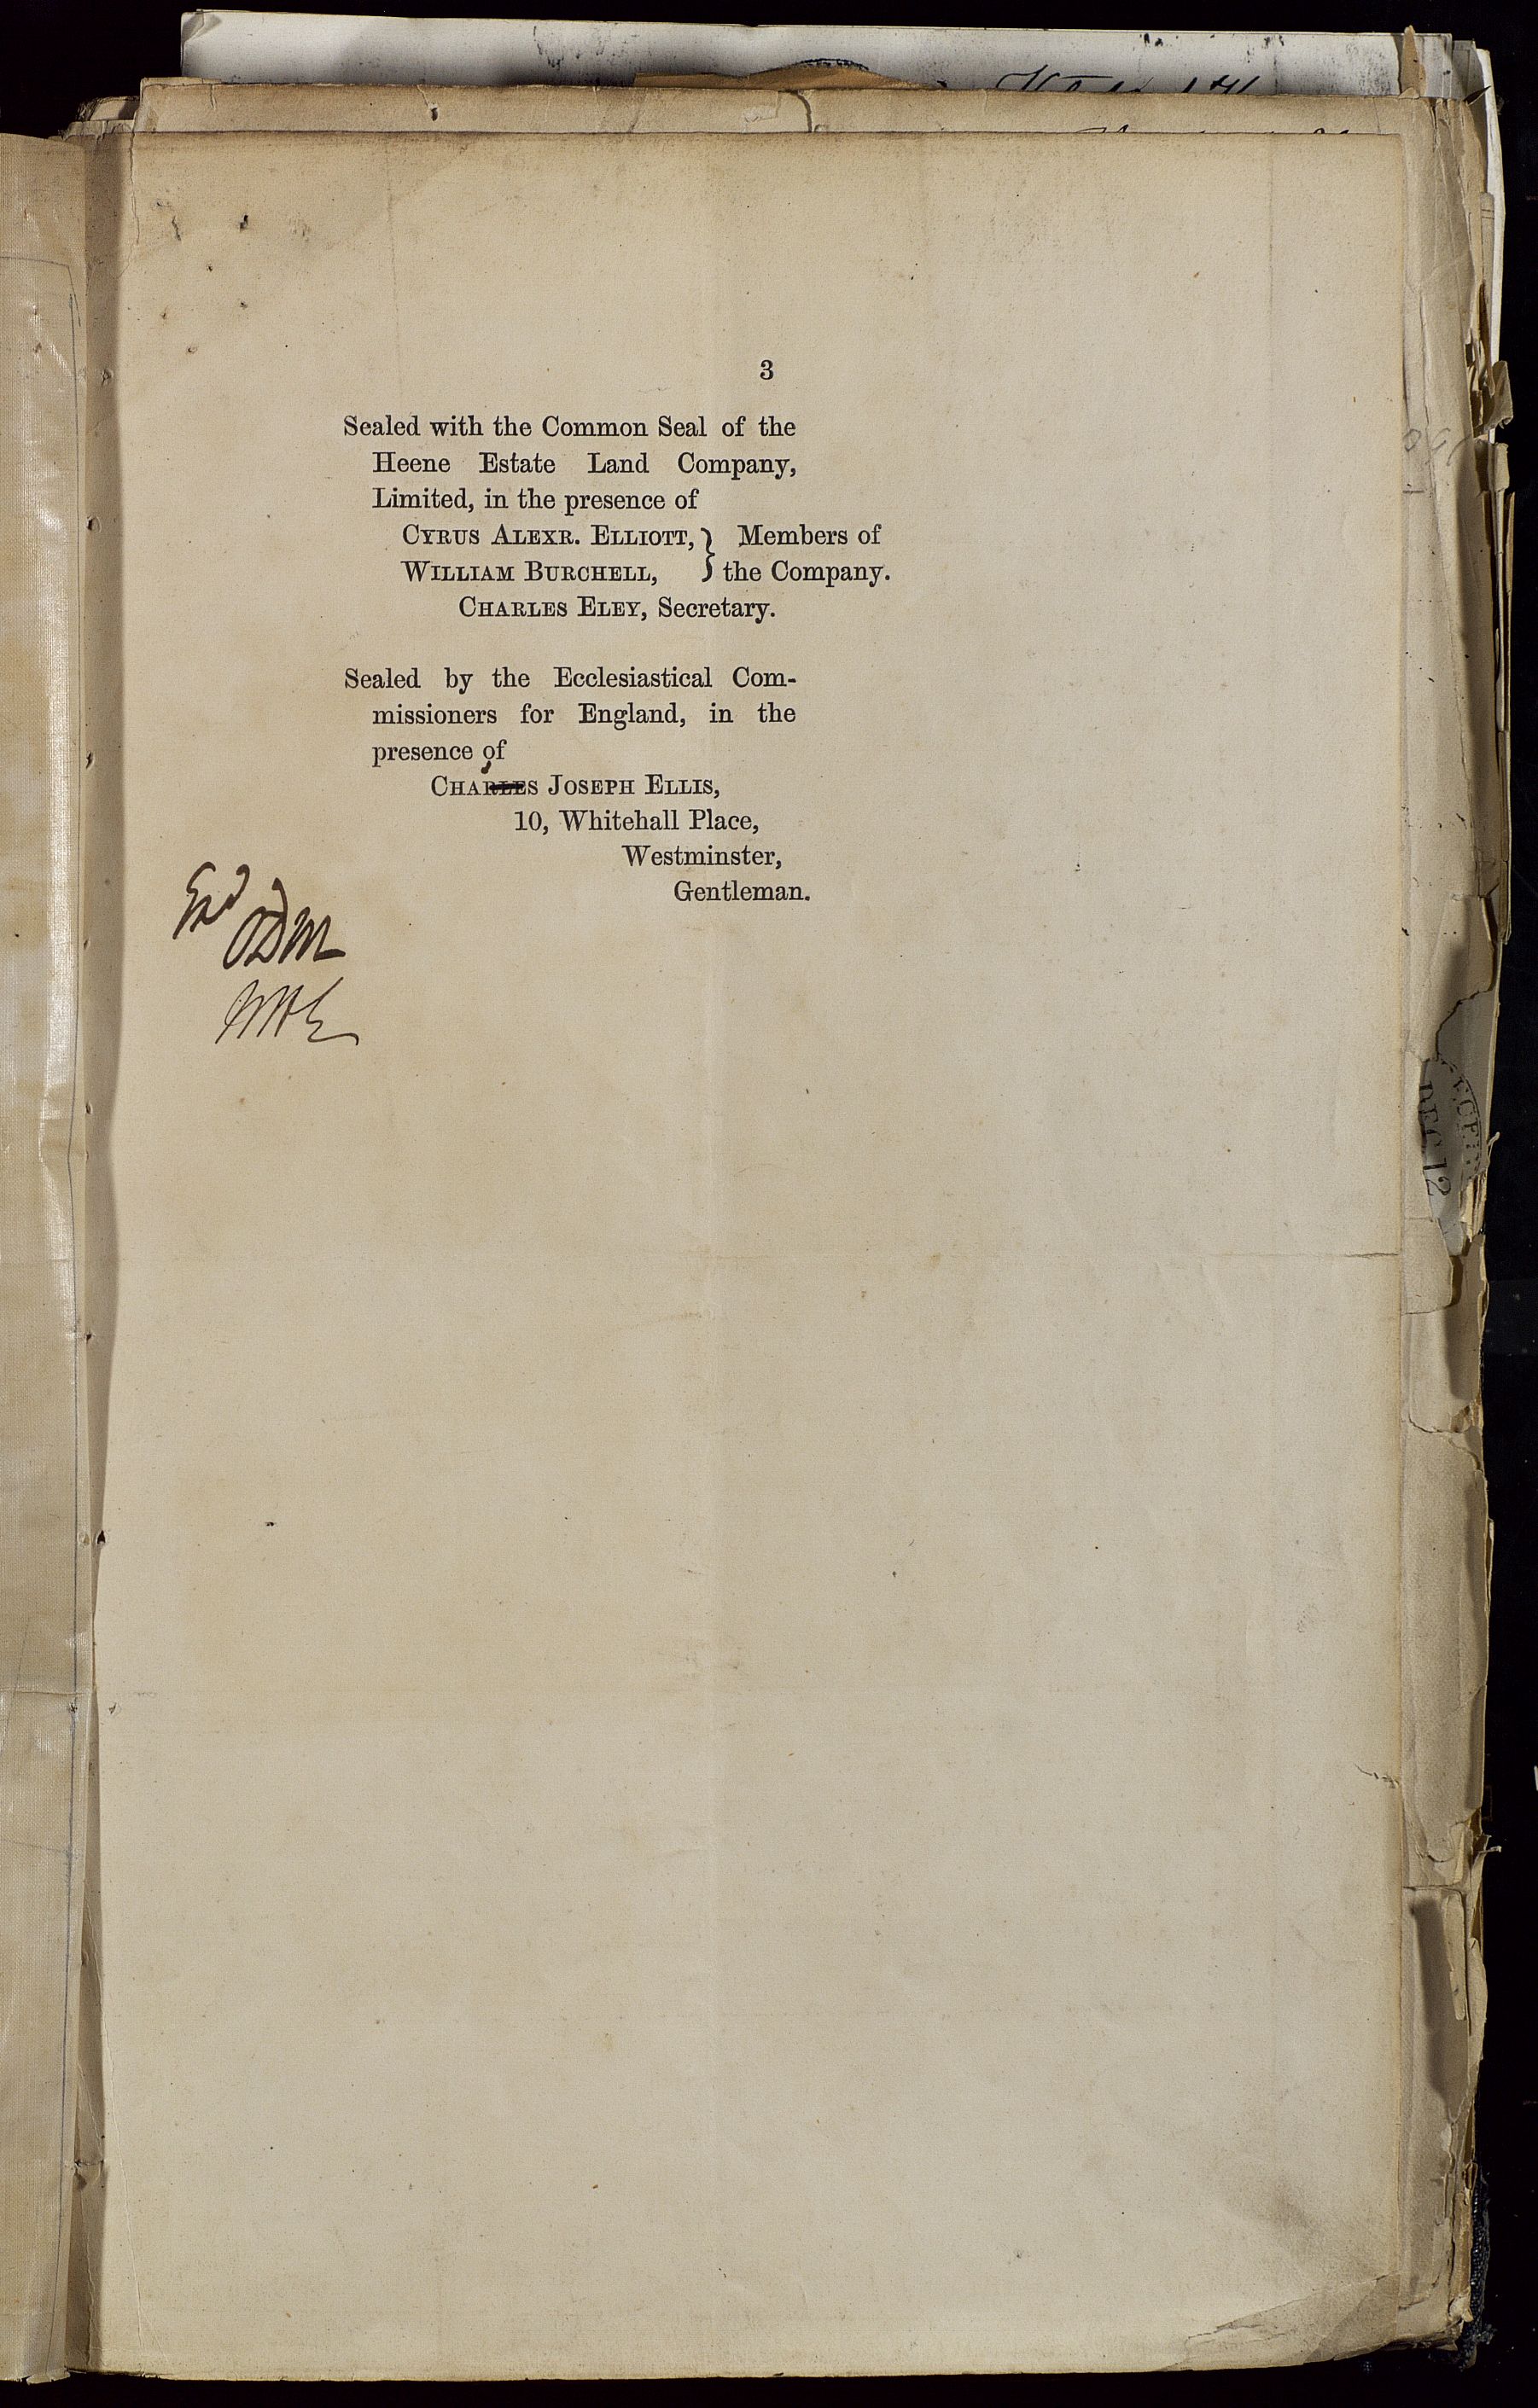 3
Sealed with the Common Seal of the
Heene Estate Land Company,
Limited, in the presence of
CYRUS ALEXR. ELLIOTT, } Members of
WILLIAM BURCHELL, } the Company.
CHARLES ELEY, Secretary.
Sealed by the Ecclesiastical Com-
missioners for England, in the
presence of
CHARLES JOSEPH ELLIS,
10, Whitehall Place,
Westminster,
Gentleman.
Exd
DEC 12